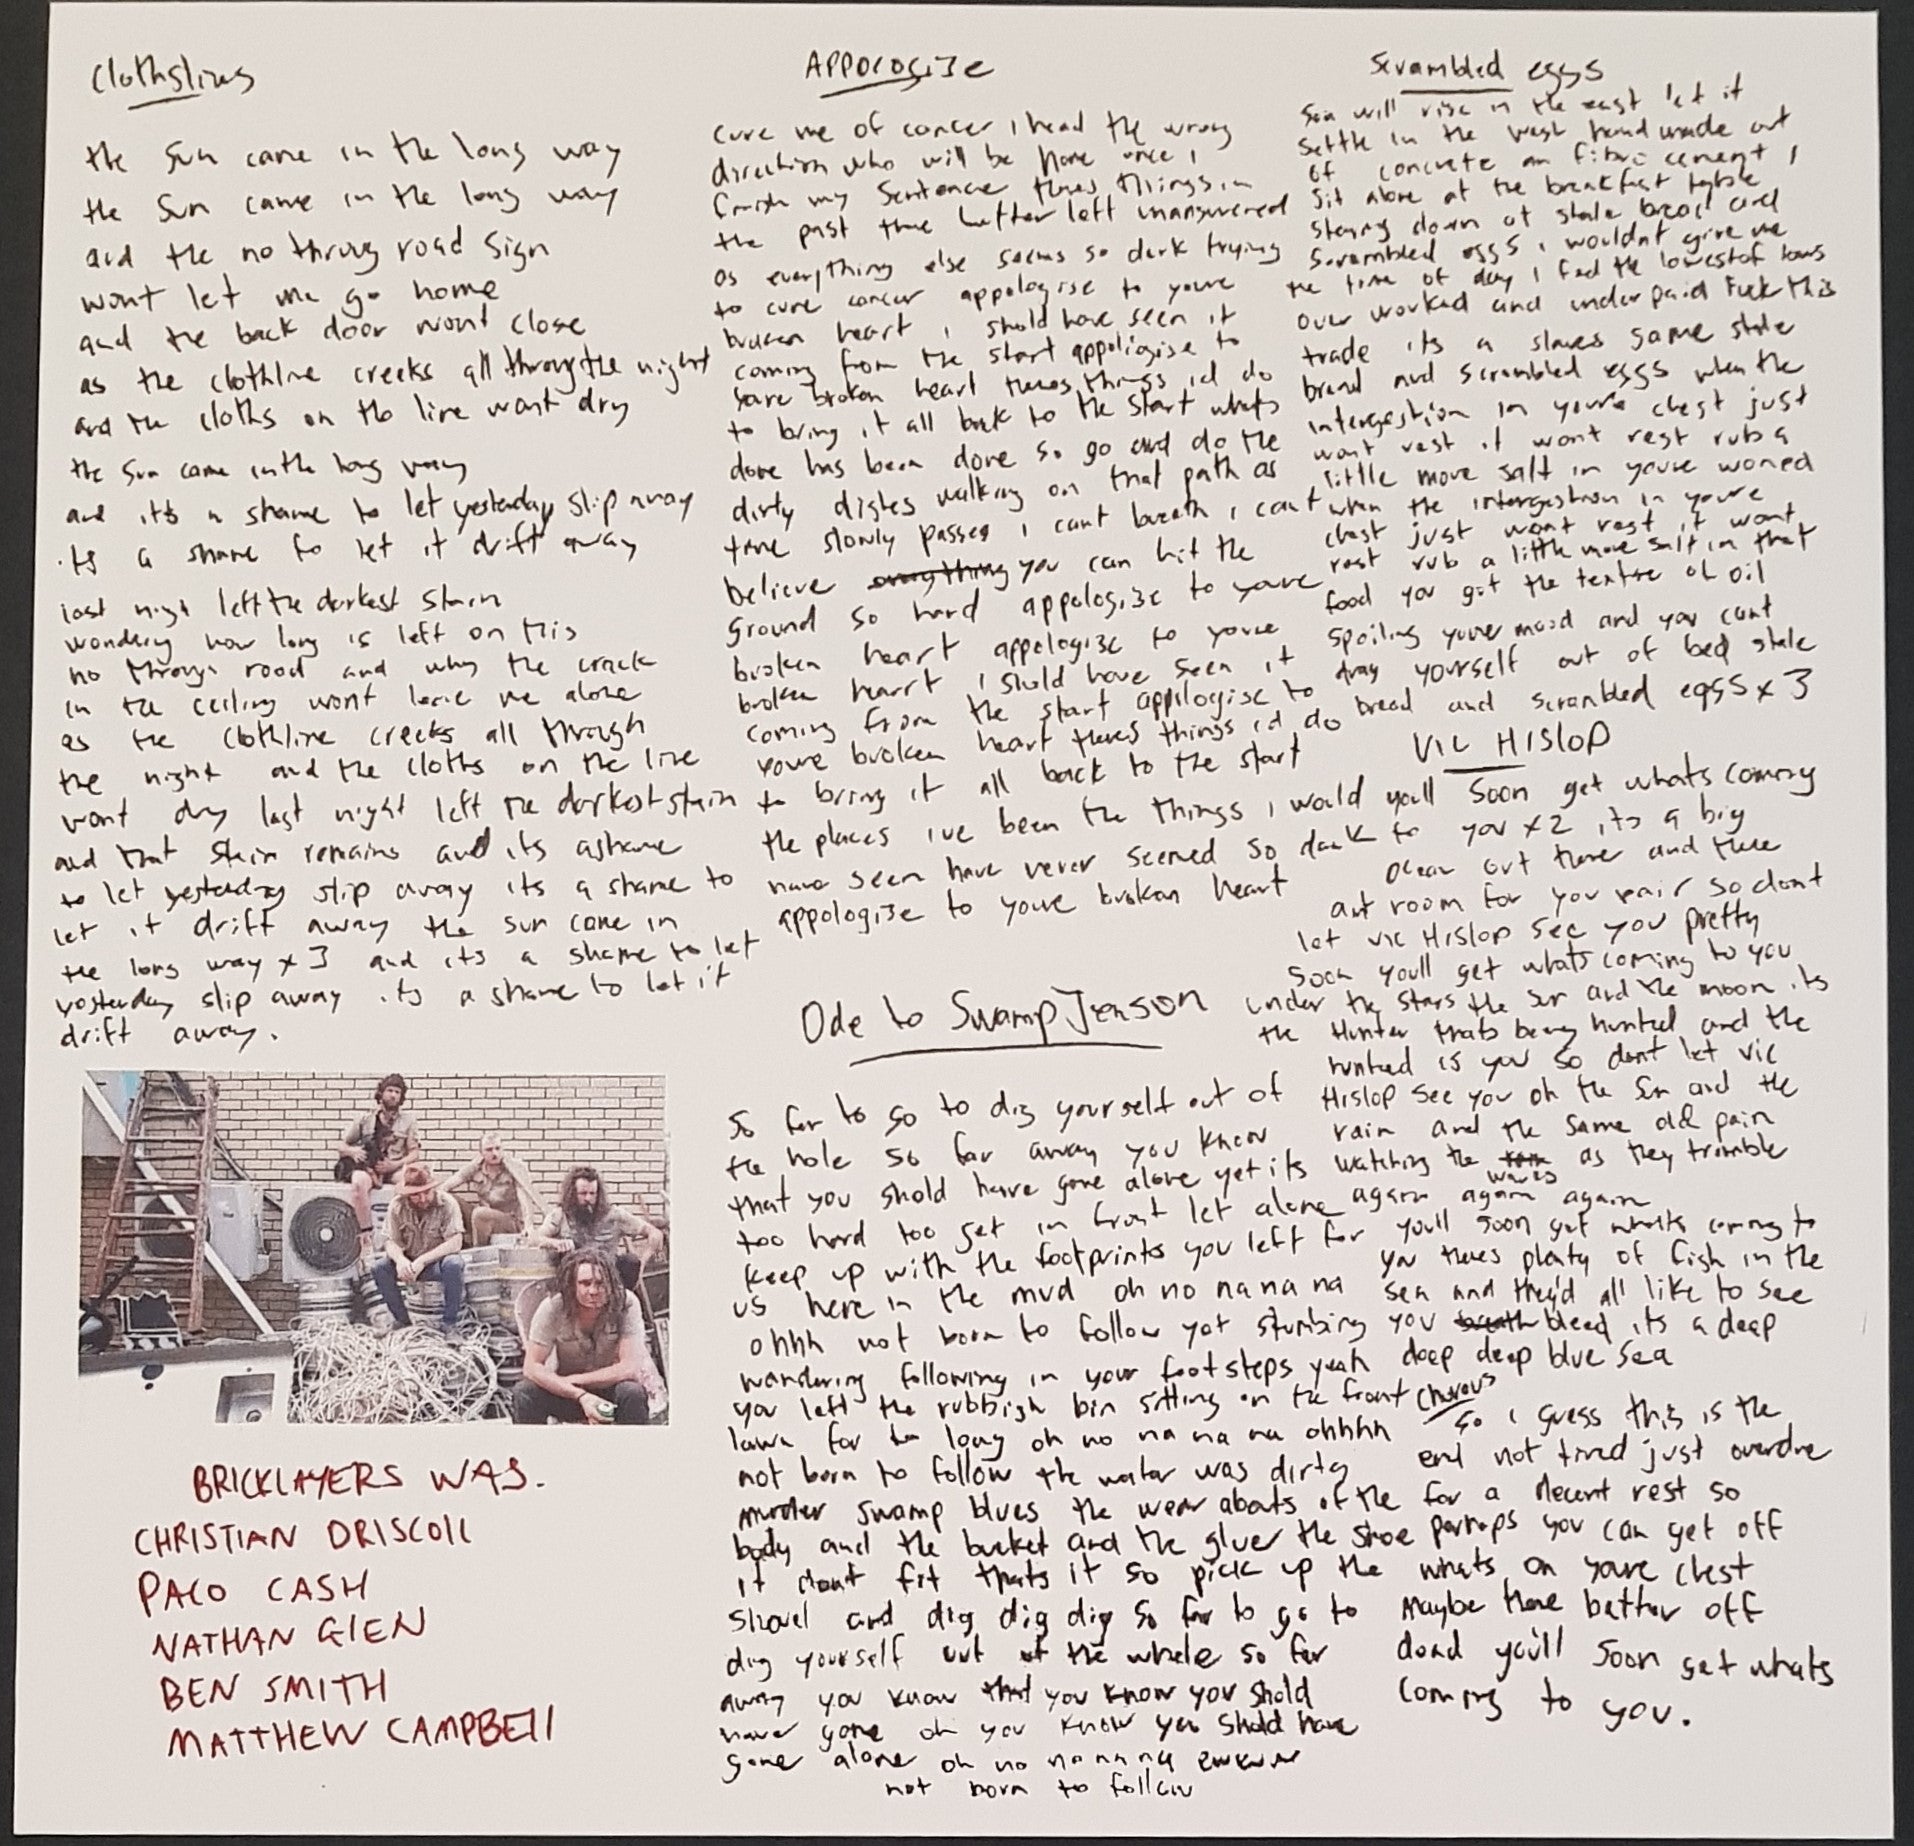 Clothslins
the sun came in the long way
the sun came in the long way
and the no throug road sign
wont let me go home
and the back door wont close
as the clothline creeks all throug the night
and the cloths on the line wont dry
the sun came in the long way
and its a shame to let yesterday slip away
its a shame to let it drift away
last night left the darkest stain
wondering how long is left on this
no through road and why the crack
in the ceiling wont leave me alone
as the clothline creeks all through
the night and the cloths on the line
wont dry last night left the darkest stain
and that stain remains and its a shame
to let yesterday slip away its a shame to
let it drift away the sun came in
the long way x 3 and its a shame to let
yesterday slip away its a shame to let it
drift away.
Appologize
cure me of cancer i head the wrong
direction who will be home once i
finish my sentence theres things in
the past thne better left unanswered
as everything else seems so dark trying
to cure cancer appologise to youre
broken heart i shold have seen it
coming from the start appoligise to
broken heart theres things id do
to bring it all back to the start whats
done has been done so go and do the
dirty dishes walking on that path as
time slowly passes i cant breath i cant
believe everything you can hit the
ground so hard appologize to youre
broken heart appologize to youre
broken hearrt i shold have seen it
coming from the start appilogise to
youre broken heart theres things id do
to bring it all back to the start
the places ive been the things i would
have seen have never seemed so dark to
appologize to youre broken heart
Scrambled eggs
Sun will rise in the east let it
settle in the west hand made out
of concrete an fibro cement i
sit alone at the breakfast table
staring down at stale bread and
scrambled eggs i wouldnt give me
the time of day i feel the lowest of lows
over worked and under paid Fuck this
trade its a slaves game stale
bread and scrambled eggs when the
intergestion in youre chest just
wont rest it wont rest rub a
little more salt in youre woned
when the intergestion in youre
chest just wont rest it wont
rest rub a little more salt in that
food you got the textre of oil
spoiling youre mood and you cant
drag yourself out of bed stale
bread and scrambled eggs x 3
VIC HISLOP
youll soon get whats coming
to you x2 its a big
ocean out there and there
aint room for you pair so dont
let vic Hislop see you pretty
soon youll get whats coming to you
under the stars the sun and the moon its
the Hunter thats being hunted and the
hunted is you so dont let vic
Hislop see you oh the sun and the
rain and the same old pain
watching the waves as they tremble
again again again
youll soon get whats coming to
you theres plenty of fish in the
sea and they'd all like to see
you breath bleed its a deep
deep deep blue sea
Chorus
so i guess this is the
end not tired just overdue
for a decent rest so
perhaps you can get off
whats on youre chest
maybe there better off
dead you'll soon get whats
coming to you.
Ode to Swamp Jenson
So far to go to dig yourself out of
the hole so far away you know
that you shold have gone alone yet its
too hard too get in front let alone
keep up with the footprints you left for
us here in the mud oh no na na na
ohhh not born to follow yet stumbing
wandering following in your footsteps yeah
you left the rubbish bin sitting on the front
lawn for to long oh no na na na ohhhh
not born to follow the water was dirty
murder swamp blues the wear abouts of the
body and the bucket and the glue the shoe
it dont fit thats it so pick up the
shovel and dig dig dig so far to go to
dig yourself out of the whole so far
away you know that you know you shold
have gone oh you know you shold have
gone alone oh no na na na
not born to follow
BRICKLAYERS WAS.
CHRISTIAN DRISCOLL
PACO CASH
NATHAN GIEN
BEN SMITH
MATTHEW CAMPBELL